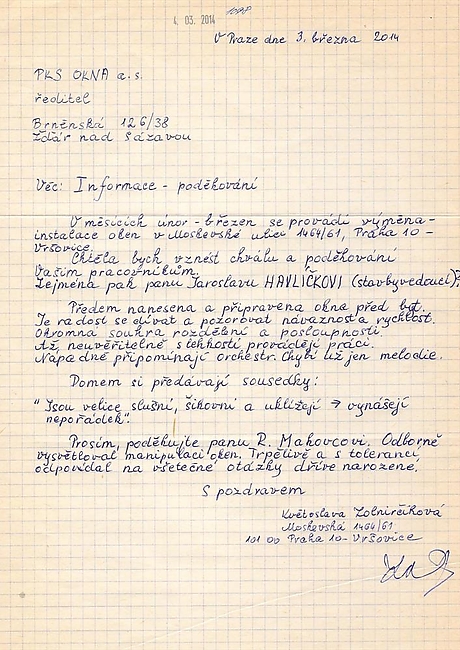 1098
4. 03. 2014
V Praze dne 3. března 2014
PKS OKNA a.s.
ředitel
Brněnská 126/38
Žďár nad Sázavou
Věc: Informace - poděkování
V měsících únor - březen se provádí výměna -
instalace oken v Moskevské ulici 1464/61, Praha 10 -
Vršovice.
Chtěla bych vznést chválu a poděkování
Vašim pracovníkům.
Zejména pak panu Jaroslavu HAVLÍČKOVI (stavbyvedoucí);
Předem nanesena a připravena okna před byt.
Je radost se dívat a pozorovat návaznost a rychlost.
Ohromná souhra rozdělení a posloupnosti.
Až, neuvěřitelně s lehkostí provádějí práci.
Nápadně připomínají orchestr. Chybí už jen melodie.
Domem si předávají sousedky:
" Jsou velice slušní, šikovní a uklízejí → vynášejí
nepořádek".
Prosím, poděkujte panu R. Mahovcovi. Odborně
vysvětloval manipulaci oken. Trpělivě a s tolerancí
odpovídal na všetečné otázky dříve narozené.
S pozdravem
Květoslava Zolnirčíková
Moskevská 1464/61
101 00 Praha 10 - Vršovice